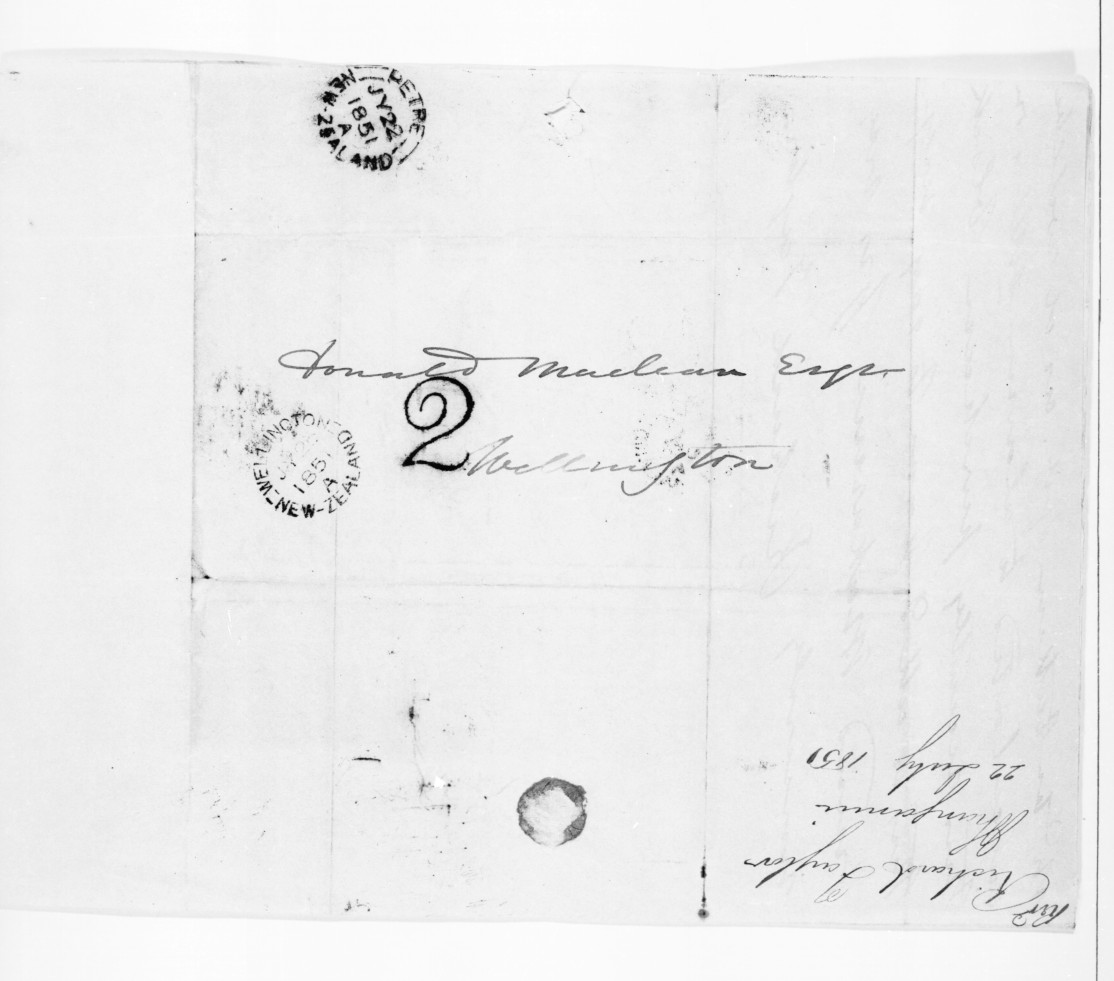 PETRE
NEW-ZEALAND
JY 22
1851
A
Donald Maclean Esqr
2
Wellington
WELLINGTON
NEW-ZEALAND
185
A
Revd Richard Taylor
Whanganui
22 July 1851